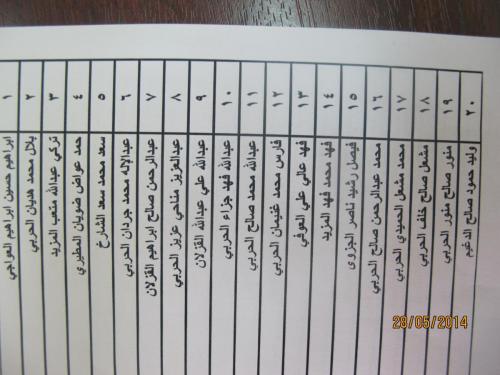 ١ ابراهيم حسين ابراهيم العواجي
٢ بلال محمد هديان الحربي
٣ تركي عبدالله متعب المزيد
٤ حمد عواض ضويان المطيري
٥ سعد محمد سعد الشارخ
٦ عبدالإله محمد جردان الحربي
٧ عبدالرحمن صالح ابراهيم القزلان
٨ عبدالعزيز مناحي عزيز الحربي
٩ عبدالله علي عبدالله القزلان
١٠ عبدالله فهد جزاء الحربي
١١ عبدالله محمد صالح الحربي
١٢ فارس محمد غنيمان الحربي
١٣ فهد عالي علي العوفي
١٤ فهد محمد فهد المزيد
١٥ فيصل رشيد ناصر الجزوى
١٦ محمد عبدالرحمن صالح الحربي
١٧ محمد مشعل الحميدي الحربي
١٨ مشعل صالح خلف الحربي
١٩ منور صالح منور الحربي
٢٠ وليد حمود صالح الدغيم
29/05/2014